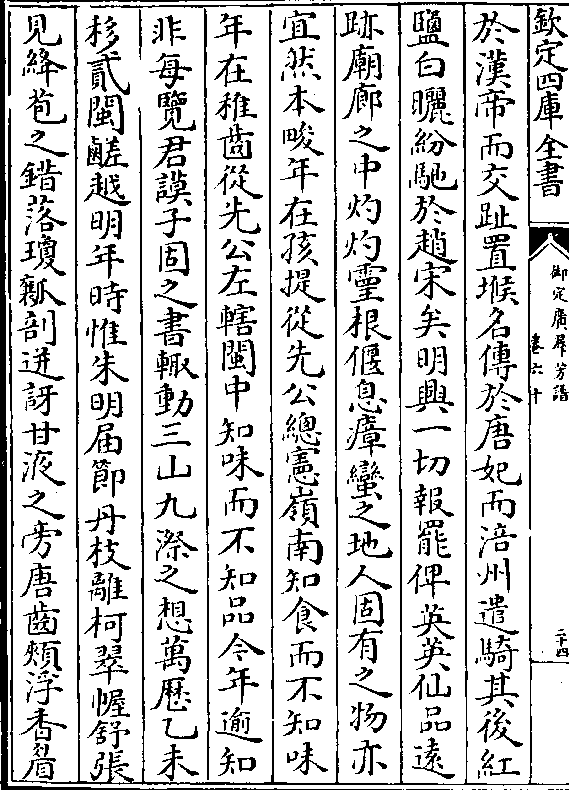 欽定四庫全書
御定廣羣芳譜
卷六十
二十四
於漢帝而交趾置堠名傳於唐妃而涪州遣騎其後紅
鹽白曬紛馳於趙宋矣明興一切報罷俾英英仙品遠
跡廟廊之中灼灼靈根偃息瘴蠻之地人固有之物亦
宜然本畯年在孩提從先公總憲嶺南知食而不知味
年在稚齒從先公左轄閩中知味而不知品今年逾知
非每覽君謨子固之書輙動三山九漈之想萬歷乙未
移貳閩鹺越明年時惟朱明届節丹枝離柯翠幄舒張
見絳苞之錯落瓊瓤剖迸訝甘液之旁唐齒頰浮香眉